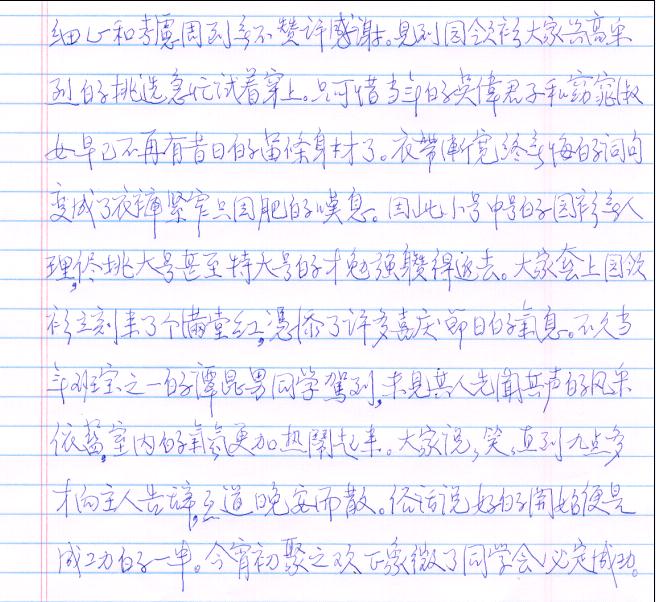 细心和考慮周到無不赞许感谢。見到圆领衫大家兴高采
烈的挑选急忙试着穿上。只可惜当年的英偉君子和窈窕淑
女早已不再有昔日的苗條身材了。衣帶漸寬終無悔的词句
变成了衣褲緊窄只因肥的嘆息。因此小号中号的圆衫無人
理,倶挑大号甚至特大号的才勉强鑽得进去。大家套上圆领
衫立刻来了个滿堂红,憑添了许多喜庆節日的氣息。不久当
年班宝之一的譚昆男同学駕到,未見其人先聞其声的风采
依舊,室内的氣氛更加热鬧起来。大家说,笑,直到九点多
才向主人告辞,互道晚安而散。俗话说好的開始便是
成功的一半。今宵初聚之欢正象徵了同学会必定成功。